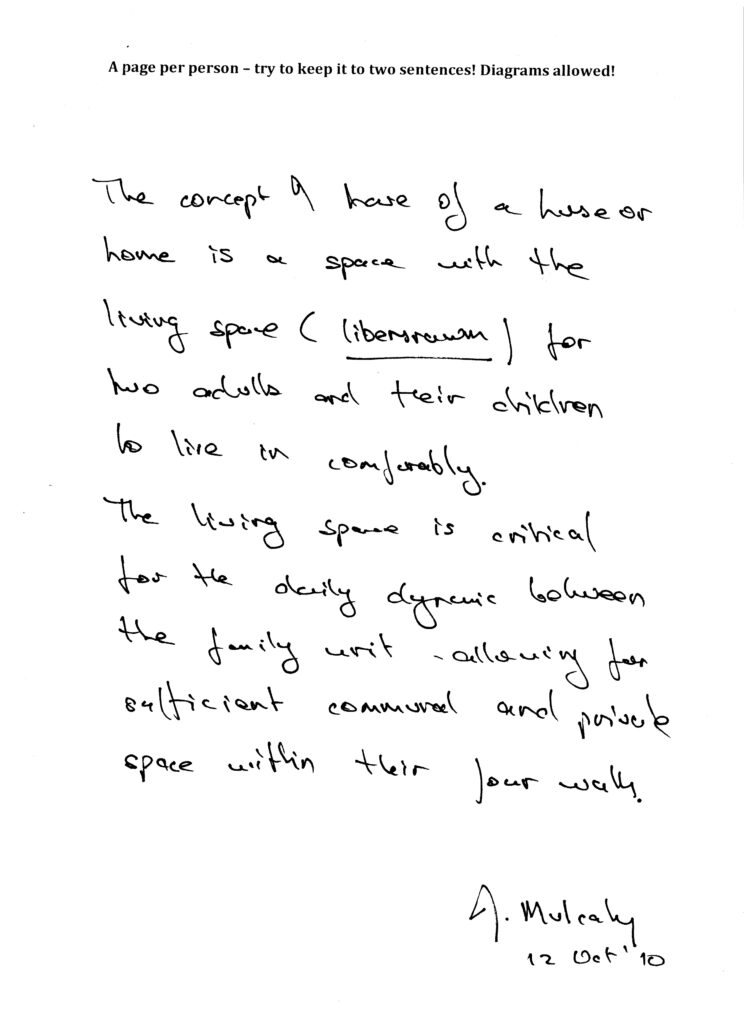 A page per person – try to keep it to two sentences! Diagrams allowed!
The concept I have of a house or
home is a space with the
living space (libensraum) for
two adults and their children
to live in comforably.
The living space is critical
for the daily dynamic between
the family unit - allowing for
sufficient communal and private
space within their four walls.
A. Mulcahy
12 Oct '10